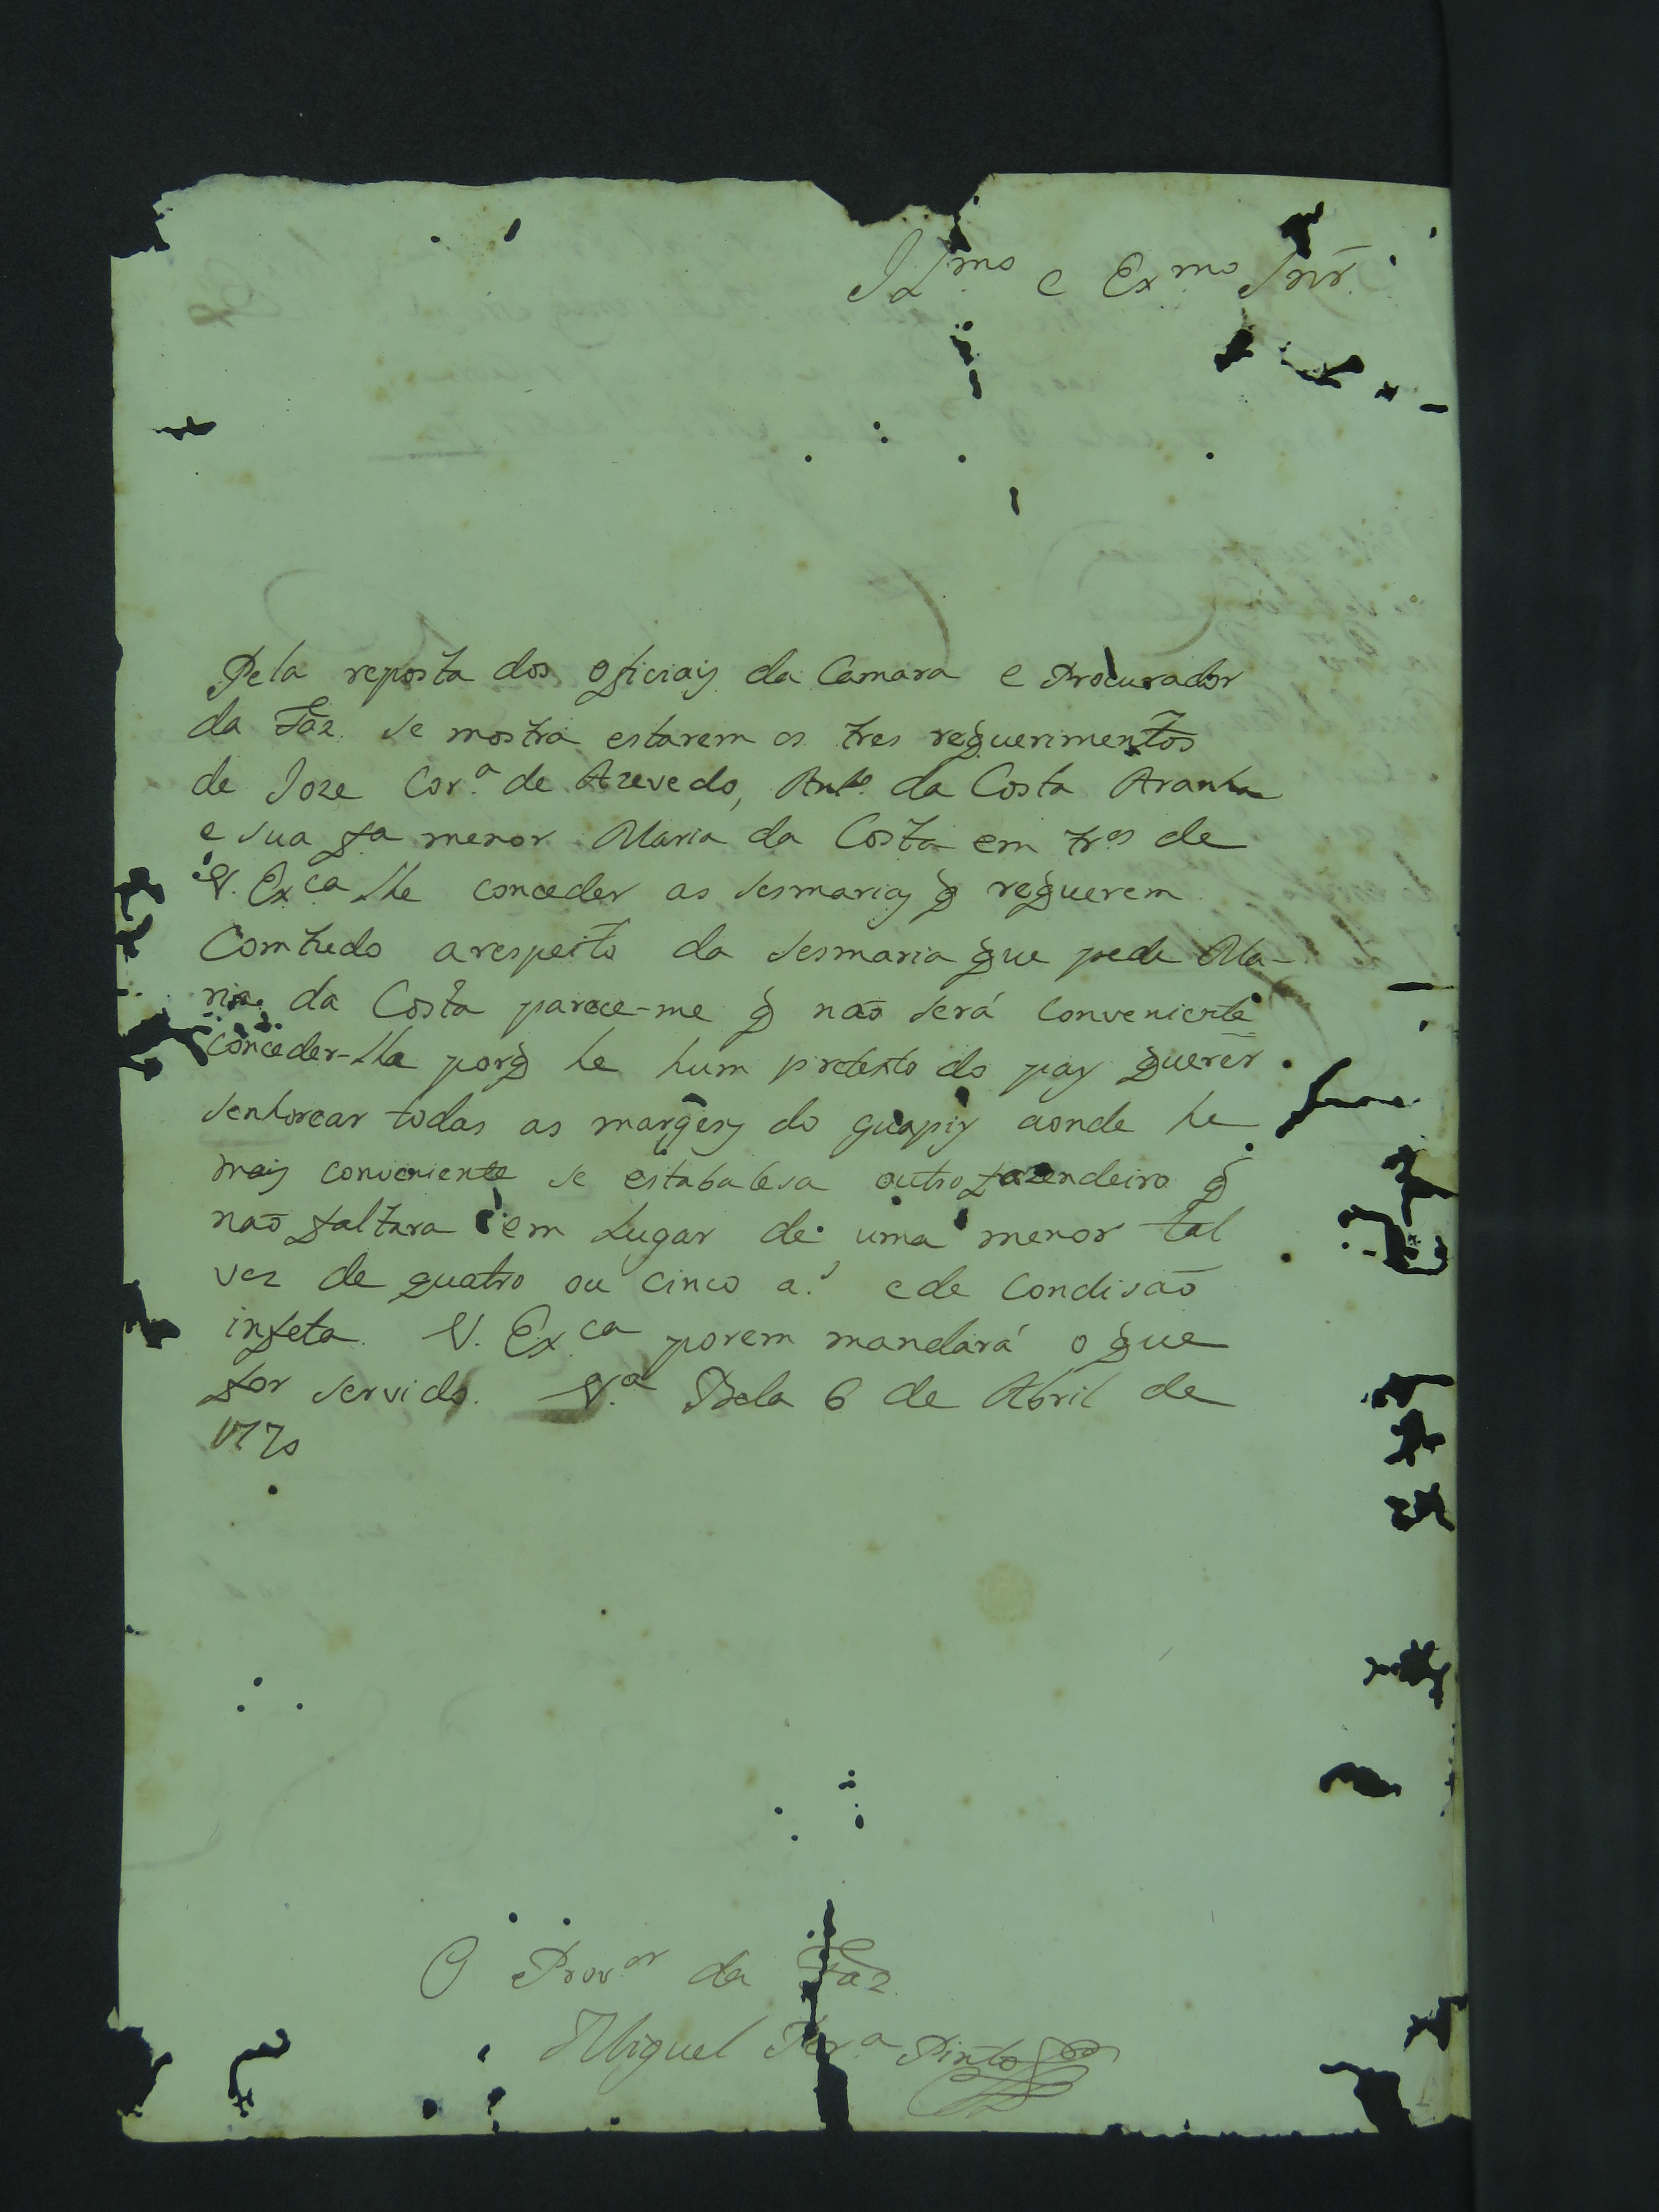 Illmo e Exmo Snr.
Pela reposta dos oficiais da Camara e Procurador
da Faz. se mostra estarem os tres requerimentos
de Joze Cor.ª de Azevedo, Ant.º da Costa Aranha
e sua fa menor Maria da Costa em tr.os de
V. Ex.ca lhe conceder as sesmarias q̃ requerem
Comtudo arespeito da sesmaria que pede Ma-
ria da Costa parece-me q̃ naõ será conveniente
conceder-lha porq̃ he hum pretexto do pay querer
senhorear todas as margẽs do guapiy aonde he
mais conveniente se estabalesa outro fazendeiro q̃
naõ faltara em lugar de uma menor tal
vez de quatro ou cinco a.s e de Condisaõ
infeta. V. Ex.ca porem mandará o que
for servido. V.ª Bela 6 de Abril de
1770
O Prov.or da Faz.
Miguel Per.ª Pinto